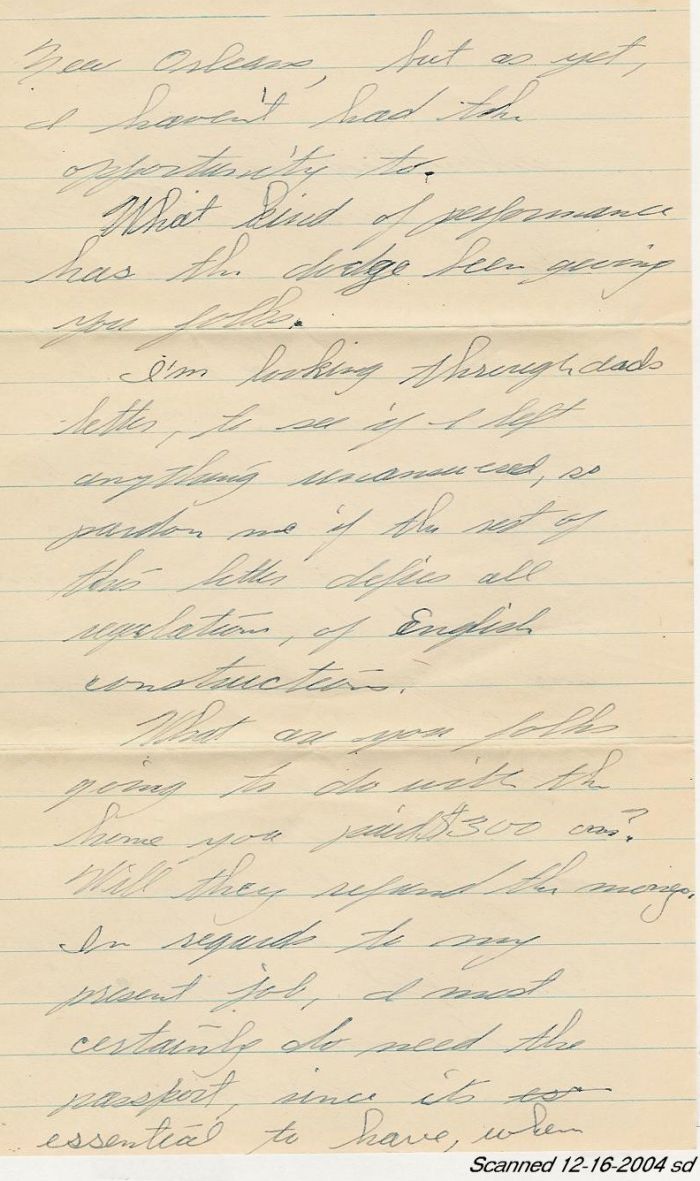 New Orleans, but as yet,
I haven't had the
opportunity to.
What kind of performance
has the dodge been giving
you folks.
I'm looking through dads
letter, to see if I left
anything unanswered, so
pardon me if the rest of
this letter defies all
regulations, of English
construction.
What are you folks
going to do with the
home you paid $300 on?
Will they refund the money.
In regards to my
present job, I most
certainly do need the
passport, since its es
essential to have, when
Scanned 12-16-2004 sd